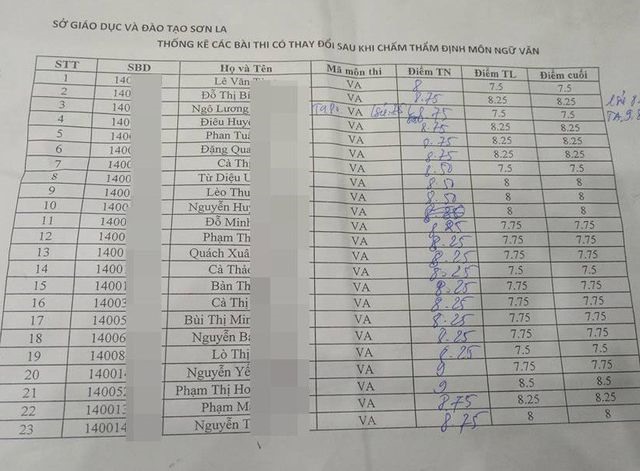 SỞ GIÁO DỤC VÀ ĐÀO TẠO SƠN LA
THỐNG KÊ CÁC BÀI THI CÓ THAY ĐỔI SAU KHI CHẤM THẨM ĐỊNH MÔN NGỮ VĂN
STT SBD Họ và Tên Mã môn thi Điểm TN Điểm TL Điểm cuối
1 140 Lê Văn VA 8 7.5 7.5
2 140 Đỗ Thị Bí VA 8.75 8.25 8.25
3 140 Ngô Lương VA 8.75 7.5 7.5
4 140 Điêu Huyề VA 8.75 8.25 8.25
5 140 Phan Tuấ VA 8.75 8.25 8.25
6 140 Đặng Qua VA 8.75 8.25 8.25
7 140 Cà Th VA 8.50 7.5 7.5
8 140 Từ Diệu VA 8.50 8 8
9 1400 Lèo Thu VA 8.50 8 8
10 1400 Nguyễn Huy VA 8 8
11 1400 Đỗ Minh VA 8.25 7.75 7.75
12 1400 Phạm Th VA 8.25 7.75 7.75
13 1400 Quách Xuâ VA 8.25 7.75 7.75
14 1400 Cà Thảo VA 8.25 7.5 7.5
15 1400 Bàn Th VA 8.25 7.75 7.75
16 14003 Cà Thị VA 8.25 7.75 7.75
17 14005 Bùi Thị Min VA 8.25 7.75 7.75
18 14006 Nguyễn Bá VA 8.25 7.75 7.75
19 14008 Lò Thị VA 8.25 7.5 7.5
20 14001 Nguyễn Yế VA 9 7.75 7.75
21 140052 Phạm Thị Ho VA 9 8.5 8.5
22 140013 Phạm M VA 8.75 8.25 8.25
23 140014 Nguyễn T VA 8.75 8 8